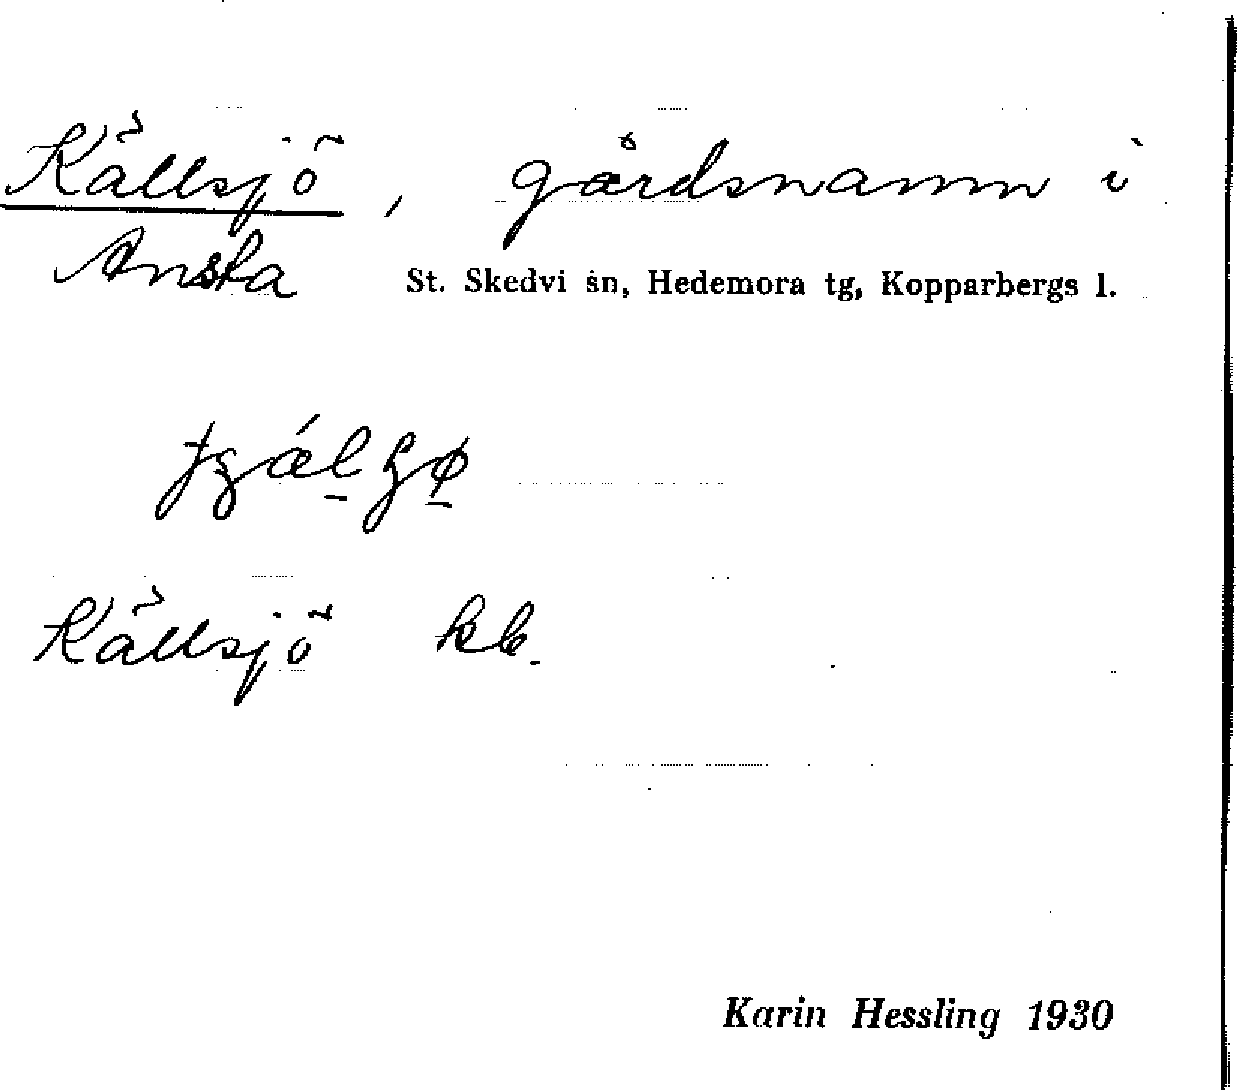 Källsjö, gårdsnamn i
Ansta St. Skedvi sn, Hedemora tg, Kopparbergs l.
Källsjö kb.
Karin Hessling 1930